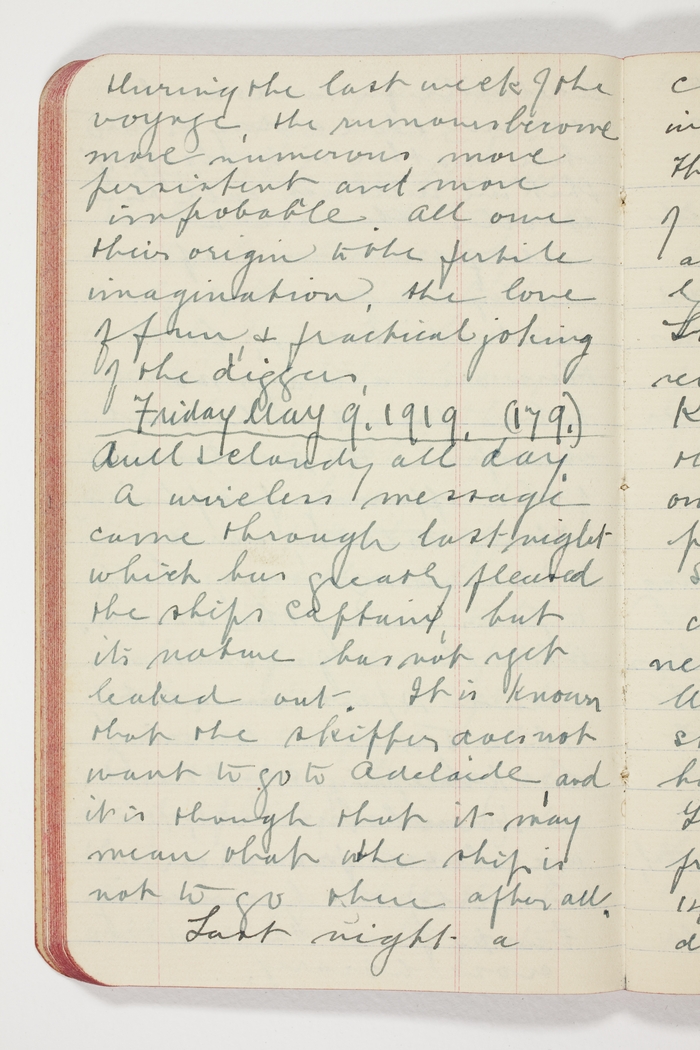 During the last week of the
voyage, the rumours become
more numerous more
persistent and more
improbable. All owe
their origin to the fertile
imagination, the love
of fun, & practical joking
of the diggers.
Friday May 9. 1919. (179.)
Dull & cloudy all day
A wireless message
came through last night
which has greatly pleased
the ships captain, but
its nature has not yet
leaked out. It is known
that the skipper does not
want to go to Adelaide and
it is though that it may
mean that the ship is
not to go there after all.
Last night a